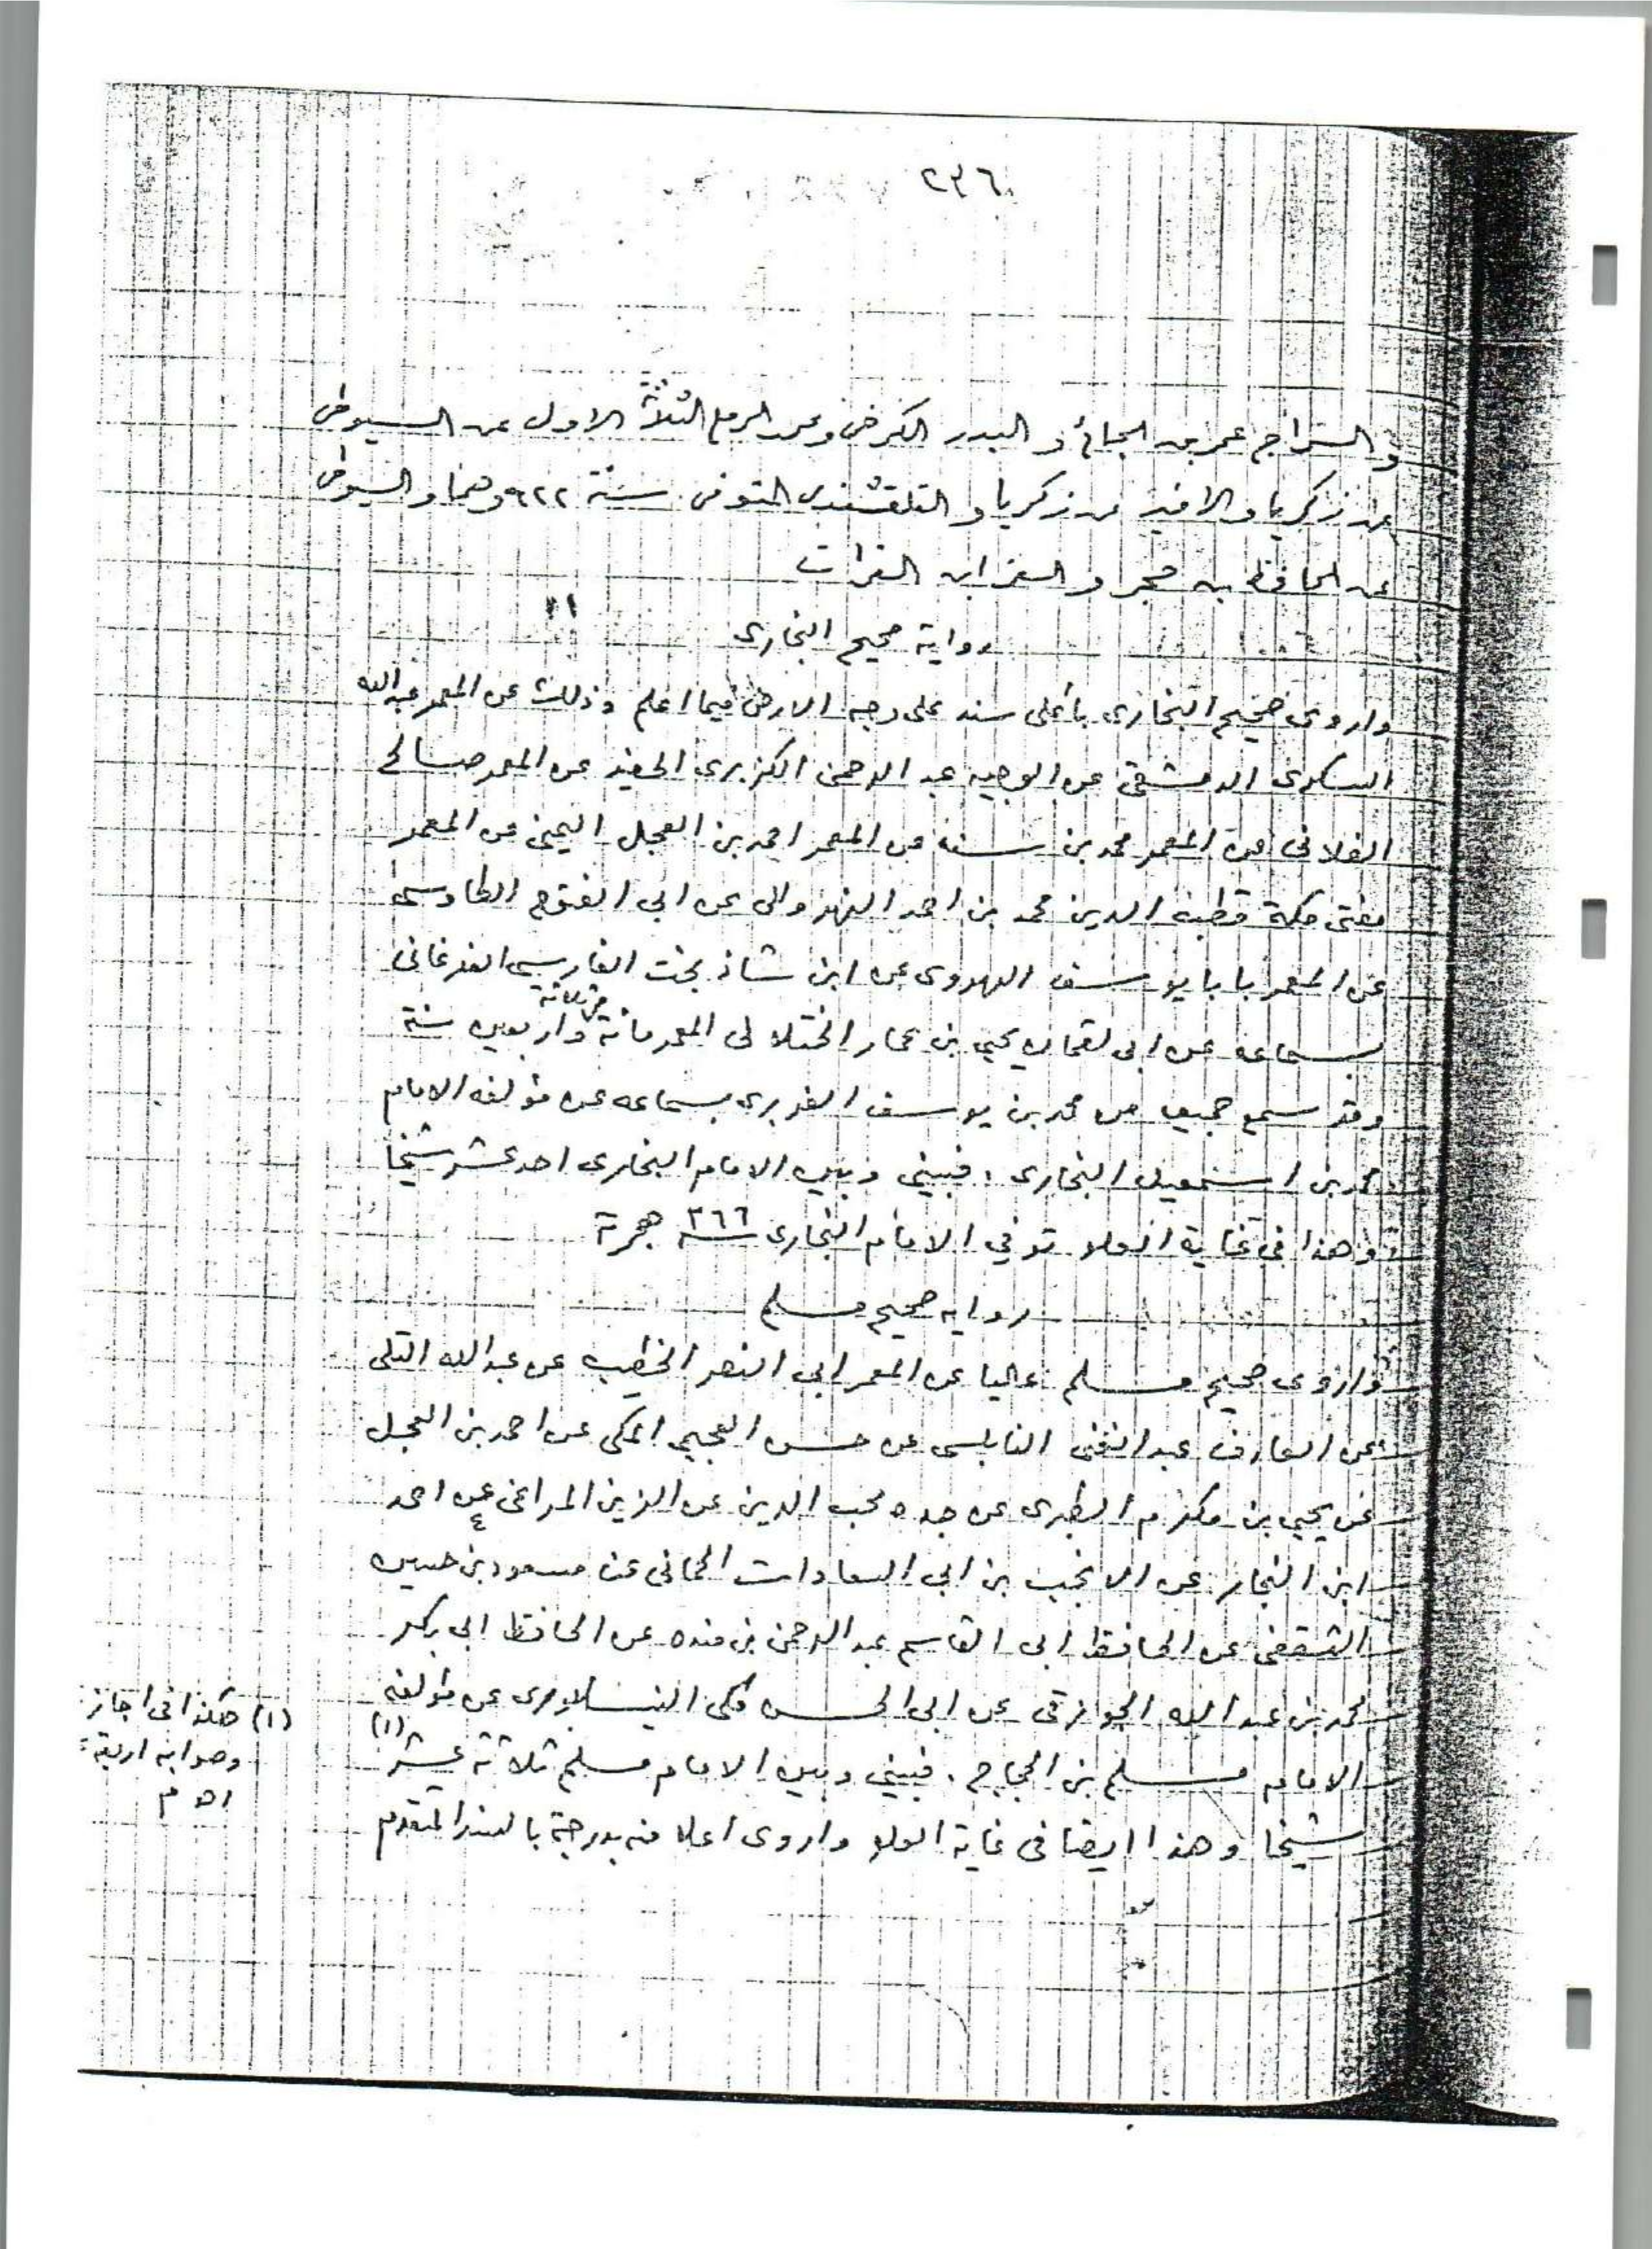 ٢٣٦
و السراج عمر بن الجائ و البدر الكرخى و محمد الرملى الثلاثة الاول عن السيوطى
عن زكريا والاخير عن زكريا و القلقشندى المتوفى سنة ٩٢٢ وهما والسيوطى
عن الحافظ بن حجر و العز ابن الفرات
رواية صحيح البخارى
واروى صحيح البخارى بأعلى سند على وجه الارض فيما اعلم وذلك عن المعمر عبدالله
السكرى الدمشقى عن الوجيه عبد الرحمن الكزبرى الحفيد عن المعمر صالح
الفلانى عن المعمر محمد بن سنه عن المعمر احمد بن العجل اليمنى عن المعمر
مفتى مكة قطب الدين محمد بن احمد النهروالى عن ابى الفتوح الطاوسى
عن المعمر بابا يوسف الهروى عن ابن شاذ بخت الفارسى الفرغانى
بسماعه عن ابى لقمان يحيى بن عمار الختلانى المعمر مائة وثلاثة واربعين سنة
وقد سمع جميعه من محمد بن يوسف الفربرى بسماعه عن مؤلفه الامام
محمد بن اسمعيل البخارى . فبينى وبين الامام البخارى احد عشر شيخا
وهذا فى غاية العلو توفي الامام البخارى سنة ٢٦٦ هجرة
رواية صحيح مسلم
واروى صحيح مسلم عاليا عن المعمر ابى النصر الخطيب عن عبدالله التلى
عن العارف عبد الغنى النابلسى عن حسن العجيمى المكى عن احمد بن العجل
عن يحيى بن مكرم الطبرى عن جده محب الدين عن الزين المراغى عن احمد
ابن النجار عن الانجب بن ابى السعادات الحمانى عن مسعود بن حسين
الثقفى عن الحافظ ابى القاسم عبد الرحمن بن منده عن الحافظ ابى بكر
محمد بن عبد الله الجوزقى عن ابى الحسن مكى النيسابورى عن مؤلفه
الامام مسلم بن الحجاج . فبينى وبين الامام مسلم ثلاثة عشر (١)
شيخا وهذا ايضا فى غاية العلو واروى اعلا منه بدرجة بالسند المتقدم
(١) هكذا فى اجاز
وصوابه اربعة
اه م